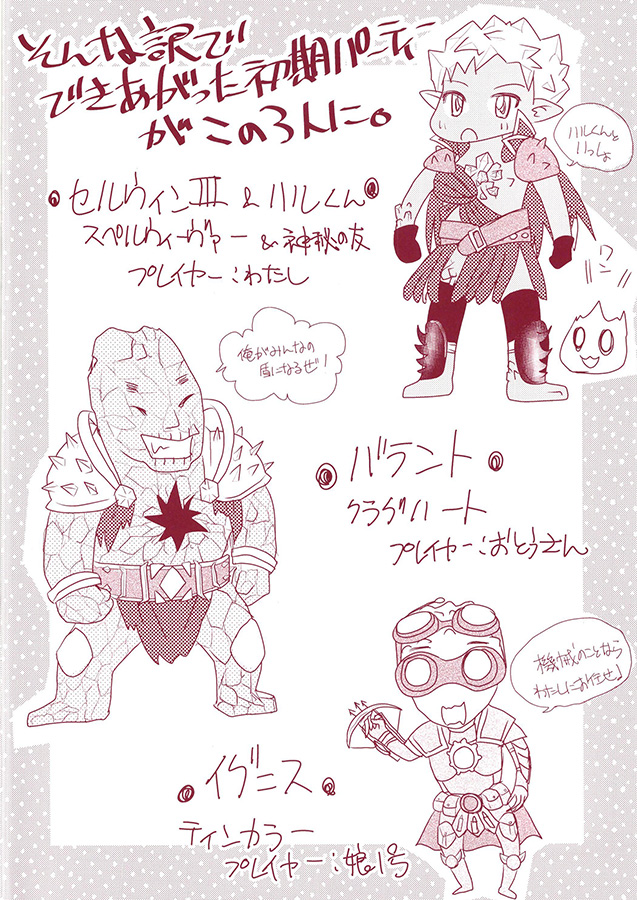 そんな訳で
できあがった初期パーティー
がこの3人に。
セルウィンⅢ & ハルくん
スペルウィーヴァー & 神秘の友
プレイヤー：わたし
ハルくんと
いっしょ
ワン
俺がみんなの
盾になるぜ！
バラント
クラグハート
プレイヤー：おとうさん
機械のことなら
わたしにお任せ♪
イグニス
ティンカラー
プレイヤー：娘1号